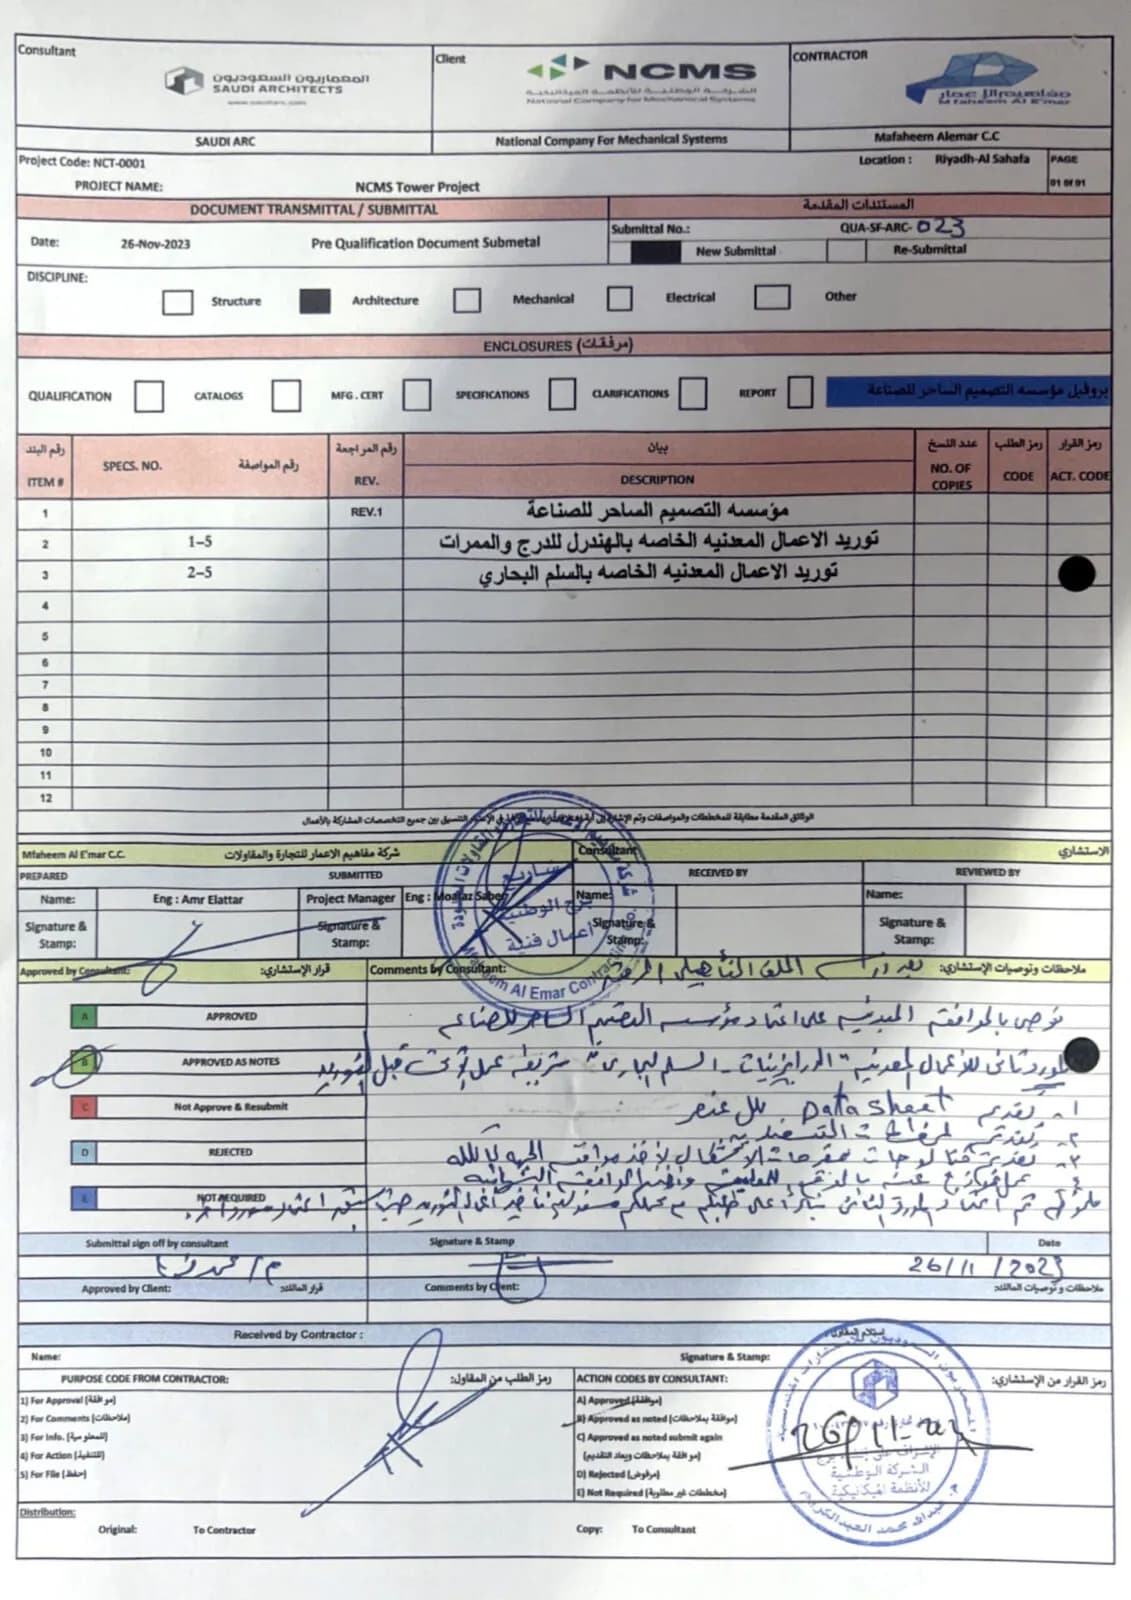 Consultant
المعماريون السعوديون
SAUDI ARCHITECTS
SAUDI ARC
Client
NCMS
الشركة الوطنية للأنظمة الميكانيكية
National Company for Mechanical Systems
National Company For Mechanical Systems
CONTRACTOR
مفاهيم الإعمار
Mfaheem Al E'mar
Mafaheem Alemar C.C
Project Code: NCT-0001
Location : Riyadh-Al Sahafa
PAGE
01 of 01
PROJECT NAME: NCMS Tower Project
DOCUMENT TRANSMITTAL / SUBMITTAL
المستندات المقدمة
Date: 26-Nov-2023 Pre Qualification Document Submetal
Submittal No.: QUA-SF-ARC-023
New Submittal Re-Submittal
DISCIPLINE:
Structure Architecture Mechanical Electrical Other
ENCLOSURES (مرفقات)
QUALIFICATION CATALOGS MFG . CERT SPECIFICATIONS CLARIFICATIONS REPORT بروفيل مؤسسه التصميم الساحر للصناعة
رقم البند رقم المواصفة رقم المراجعة بيان عدد النسخ رمز الطلب رمز القرار
ITEM # SPECS. NO. REV. DESCRIPTION NO. OF COPIES CODE ACT. CODE
1 REV.1 مؤسسه التصميم الساحر للصناعة
2 1-5 توريد الاعمال المعدنيه الخاصه بالهندرل للدرج والممرات
3 2-5 توريد الاعمال المعدنيه الخاصه بالسلم البحاري
4
5
6
7
8
9
10
11
12
الوثائق المقدمة مطابقة للمخططات والمواصفات وتم الإشارة إلى التنسيق بين جميع التخصصات المشاركة بالأعمال
Mfaheem Al E'mar C.C. شركة مفاهيم الاعمار للتجارة والمقاولات
Consultant الاستشاري
PREPARED SUBMITTED RECEIVED BY REVIEWED BY
Name: Eng : Amr Elattar Project Manager Eng : Moataz Saber Name: Name:
Signature & Stamp: Signature & Stamp: Signature & Stamp: Signature & Stamp:
Mafaheem Al Emar Contracting Co.
أعمال فنية
Approved by Consultant: قرار الإستشاري:
Comments by Consultant: ملاحظات وتوصيات الإستشاري:
الملف التأهيلي
نوصي بالموافقة المبدئية على اعتماد مؤسسه التصميم الساحر للصناعه
A APPROVED
B APPROVED AS NOTES
C Not Approve & Resubmit
D REJECTED
E NOT REQUIRED
١- تقديم Data Sheet لكل عنصر
Submittal sign off by consultant Signature & Stamp Date
26/11/2023
Approved by Client: قرار المالك:
Comments by Client: ملاحظات وتوصيات المالك:
Received by Contractor : إستلام المقاول:
Name: Signature & Stamp:
PURPOSE CODE FROM CONTRACTOR: رمز الطلب من المقاول:
1) For Approval (موافقة)
2) For Comments (ملاحظات)
3) For Info. (للمعلومية)
4) For Action (للتنفيذ)
5) For File (حفظ)
ACTION CODES BY CONSULTANT: رمز القرار من الإستشاري:
A) Approved (موافقة)
B) Approved as noted (موافقة بملاحظات)
C) Approved as noted submit again
(موافقة بملاحظات ويعاد التقديم)
D) Rejected (مرفوض)
E) Not Required (مخططات غير مطلوبة)
الشركة الوطنية
للأنظمة الميكانيكية
Distribution:
Original: To Contractor Copy: To Consultant